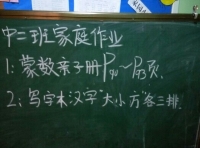 中二班家庭作业
1:蒙数亲子册P94~P93页.
2:写字本汉字"大小方"各三排.